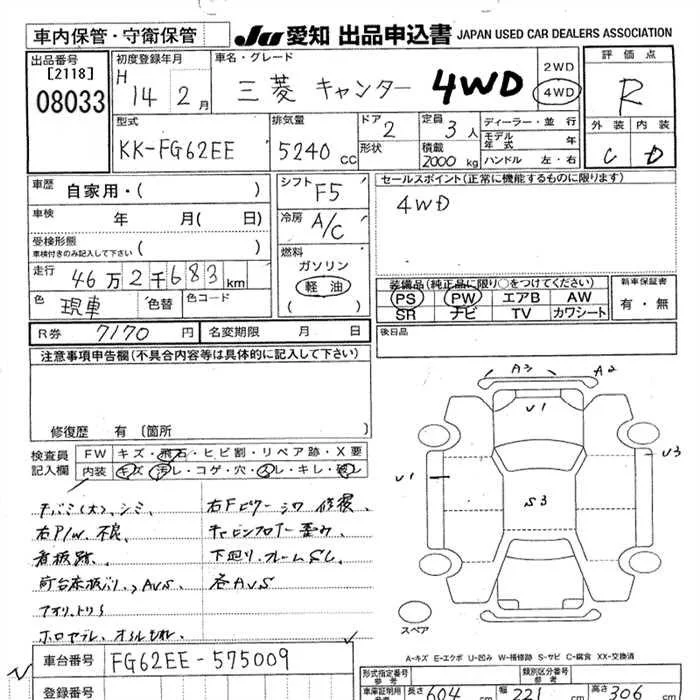 車内保管・守衛保管
JU 愛知 出品申込書 JAPAN USED CAR DEALERS ASSOCIATION
出品番号
[2118]
08033
初度登録年月
H 14 2月
車名・グレード
三菱 キャンター 4WD
2WD
4WD
評価点
R
外装 内装
C D
型式
KK-FG62EE
排気量
5240 CC
ドア 2
形状
定員 3人
積載 2000 kg
ディーラー・並行
モデル年式 年
ハンドル 左・右
車歴 自家用・( )
車検 年 月( 日)
受検形態 ( )
車検付きのみ記入して下さい
走行 46万2千683km
色 現車 色替 色コード
シフト F5
冷房 A/C
燃料
ガソリン
軽油
( )
セールスポイント(正常に機能するものに限ります)
4WD
装備品(純正品に限り○をつけてください)
PS PW エアB AW
SR ナビ TV カワシート
新車保証書
有・無
R券 7170円 名変期限 月 日
後日品
注意事項申告欄(不具合内容等は具体的に記入して下さい)
修復歴 有 〔箇所
検査員記入欄
FW キズ・飛石・ヒビ割・リペア跡・X要
内装 キズ・汚レ・コゲ・穴・スレ・キレ・破レ
A3 A2
U1
U1
U3
S3
スペア
右P/W 不良
看板跡
下廻り・フレームSし
各AUS
A-キズ E-エクボ U-凹み W-補修跡 S-サビ C-腐食 XX-交換済
車台番号 FG62EE-575009
登録番号
形式指定番号
参考
類別区分番号
参考
車庫証明用
長さ 604 cm 幅 221 cm 高さ 306 cm